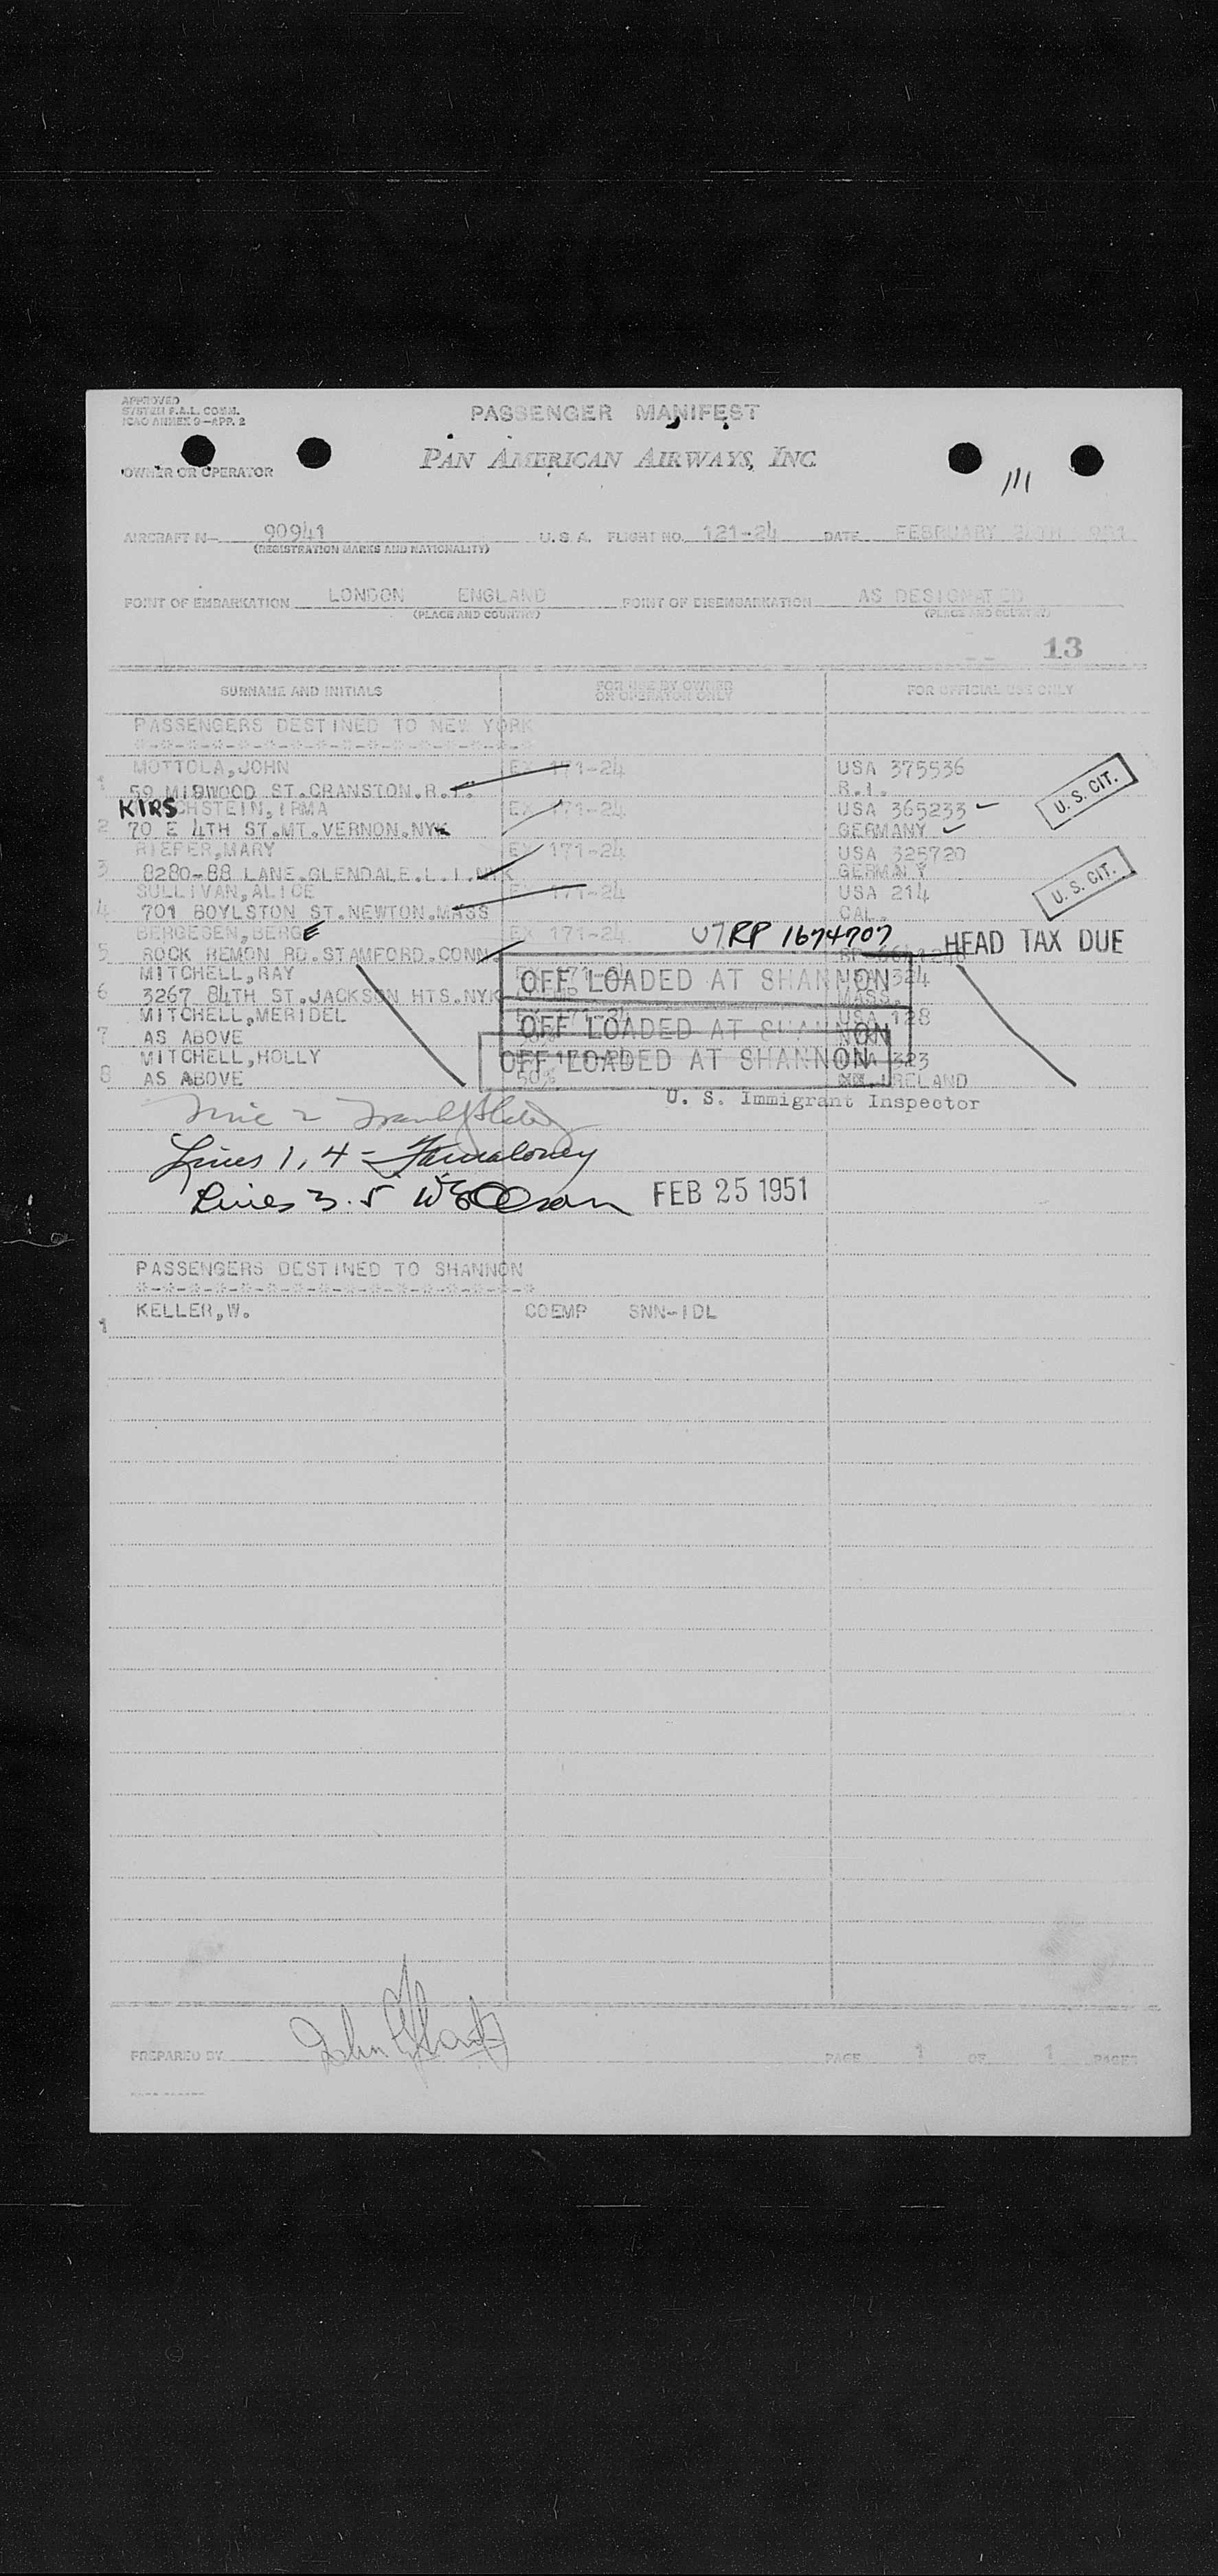 APPROVED
SYSTEM F.A.L. COMM.
ICAO ANNEX 9-APP. 2
PASSENGER MANIFEST
OWNER OR OPERATOR
PAN AMERICAN AIRWAYS, INC
111
AIRCRAFT N- 90941 U.S.A. FLIGHT NO. 121-24 DATE FEBRUARY
(REGISTRATION MARKS AND NATIONALITY)
POINT OF EMBARKATION LONDON ENGLAND POINT OF DISEMBARKATION AS DESIGNATED
(PLACE AND COUNTRY) (PLACE AND COUNTRY)
13
SURNAME AND INITIALS FOR USE BY OWNER OR OPERATOR ONLY FOR OFFICIAL USE ONLY
PASSENGERS DESTINED TO NEW YORK
*-*-*-*-*-*-*-*-*-*-*-*-*-*-*-*
MOTTOLA,JOHN EX 171-24 USA 375536
1 59 MIDWOOD ST.CRANSTON.R.I. R.I.
U.S. CIT.
KIRSCHSTEIN,IRMA EX 171-24 USA 365233
2 70 E 4TH ST.MT.VERNON.NYK GERMANY
RIEFER,MARY EX 171-24 USA 325720
3 8280-88 LANE.GLENDALE.L.I.NYK GERMANY
U.S. CIT.
SULLIVAN,ALICE EX 171-24 USA 214
4 701 BOYLSTON ST.NEWTON.MASS CAL.
BERGESEN,BERGE EX 171-24 RP 1674707 HEAD TAX DUE
5 ROCK REMON RD.STAMFORD.CONN.
MITCHELL,RAY OFF LOADED AT SHANNON 324
6 3267 84TH ST.JACKSON HTS.NYK MASS.
MITCHELL,MERIDEL OFF LOADED AT SHANNON USA 128
7 AS ABOVE
MITCHELL,HOLLY OFF LOADED AT SHANNON USA 323
8 AS ABOVE 50% IRELAND
U. S. Immigrant Inspector
Lines 1, 4 -
Lines 3. 5 FEB 25 1951
PASSENGERS DESTINED TO SHANNON
*-*-*-*-*-*-*-*-*-*-*-*-*-*-*-*
KELLER,W. COEMP SNN-IDL
1
PREPARED BY PAGE 1 OF 1 PAGES